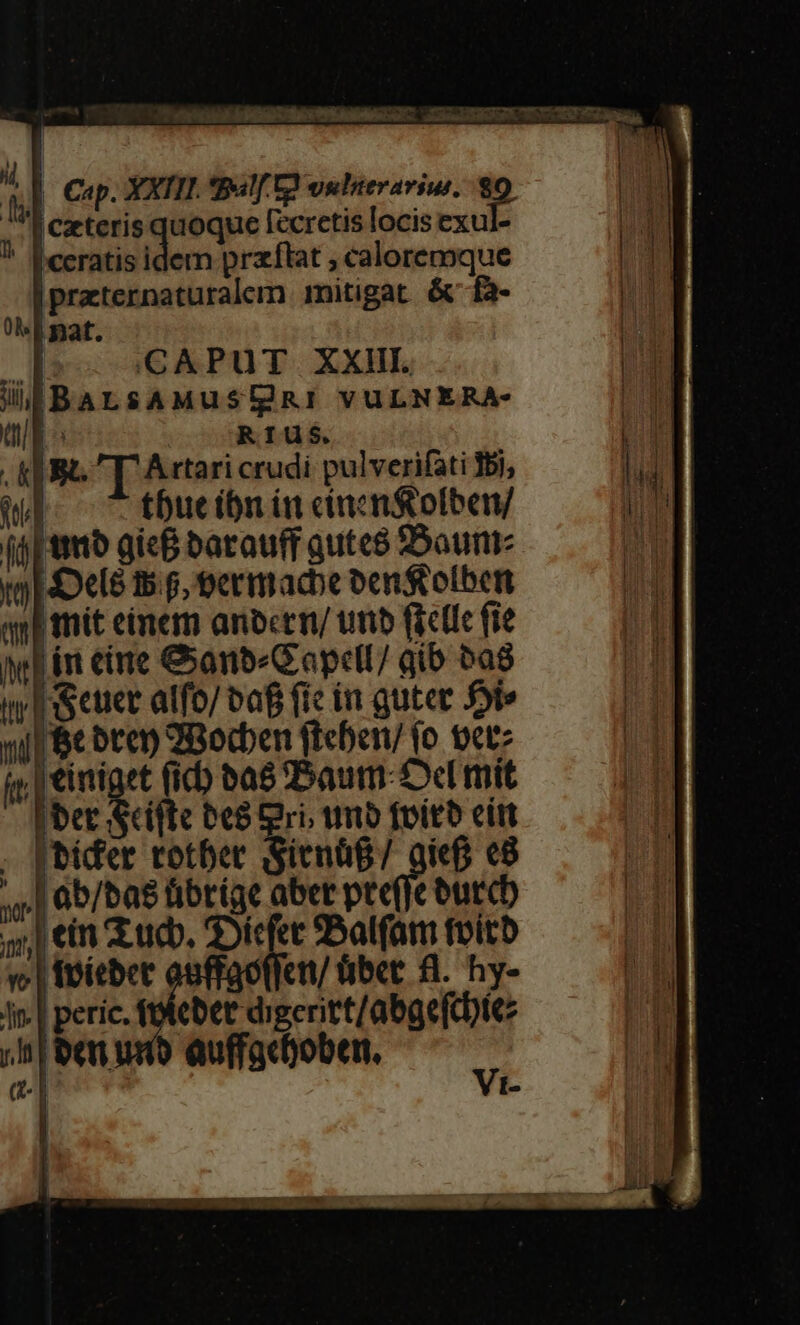 Cap. XXIII. Balf. 🜿 vulnerarius. 89
cæteris quoque ſecretis locis exul-
ceratis idem præſtat, caloremque
præternaturalem mitigat & ſa-
nat.
CAPUT XXIII.
BALSAMUS 🜿RI VULNERA-
RIUS.
℞. TArtari crudi pulveriſati ℔j,
thue ihn in einen Kolben/
und gieß darauff gutes Baum-
Oels ℔ ß, vermache den Kolben
mit einem andern/ und ſtelle ſie
in eine Sand-Capell/ gib das
Feuer alſo/ daß ſie in guter Hi-
tze drey Wochen ſtehen/ ſo ver-
einiget ſich das Baum-Oel mit
der Feiſte des 🜿ri, und wird ein
dicker rother Firnüß/ gieß es
ab/das übrige aber preſſe durch
ein Tuch. Dieſer Balſam wird
wieder auffgoſſen/ über fl. hy-
peric. wieder digerirt/abgeſchie-
den und auffgehoben.
VI-